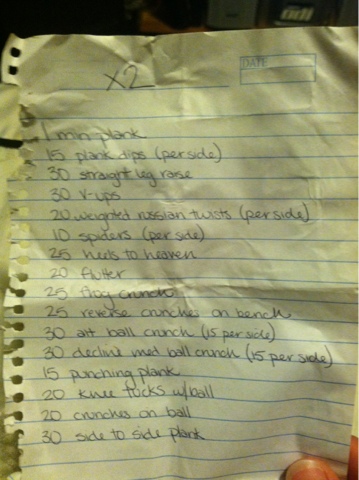 X2
DATE
1 min plank
15 plank dips (per side)
30 straight leg raise
30 V-ups
20 weighted russian twists (per side)
10 spiders (per side)
25 heels to heaven
20 flutter
25 frog crunch
25 reverse crunches on bench
30 alt ball crunch (15 per side)
30 decline med ball crunch (15 per side)
15 punching plank
20 knee tucks w/ball
20 crunches on ball
30 side to side plank